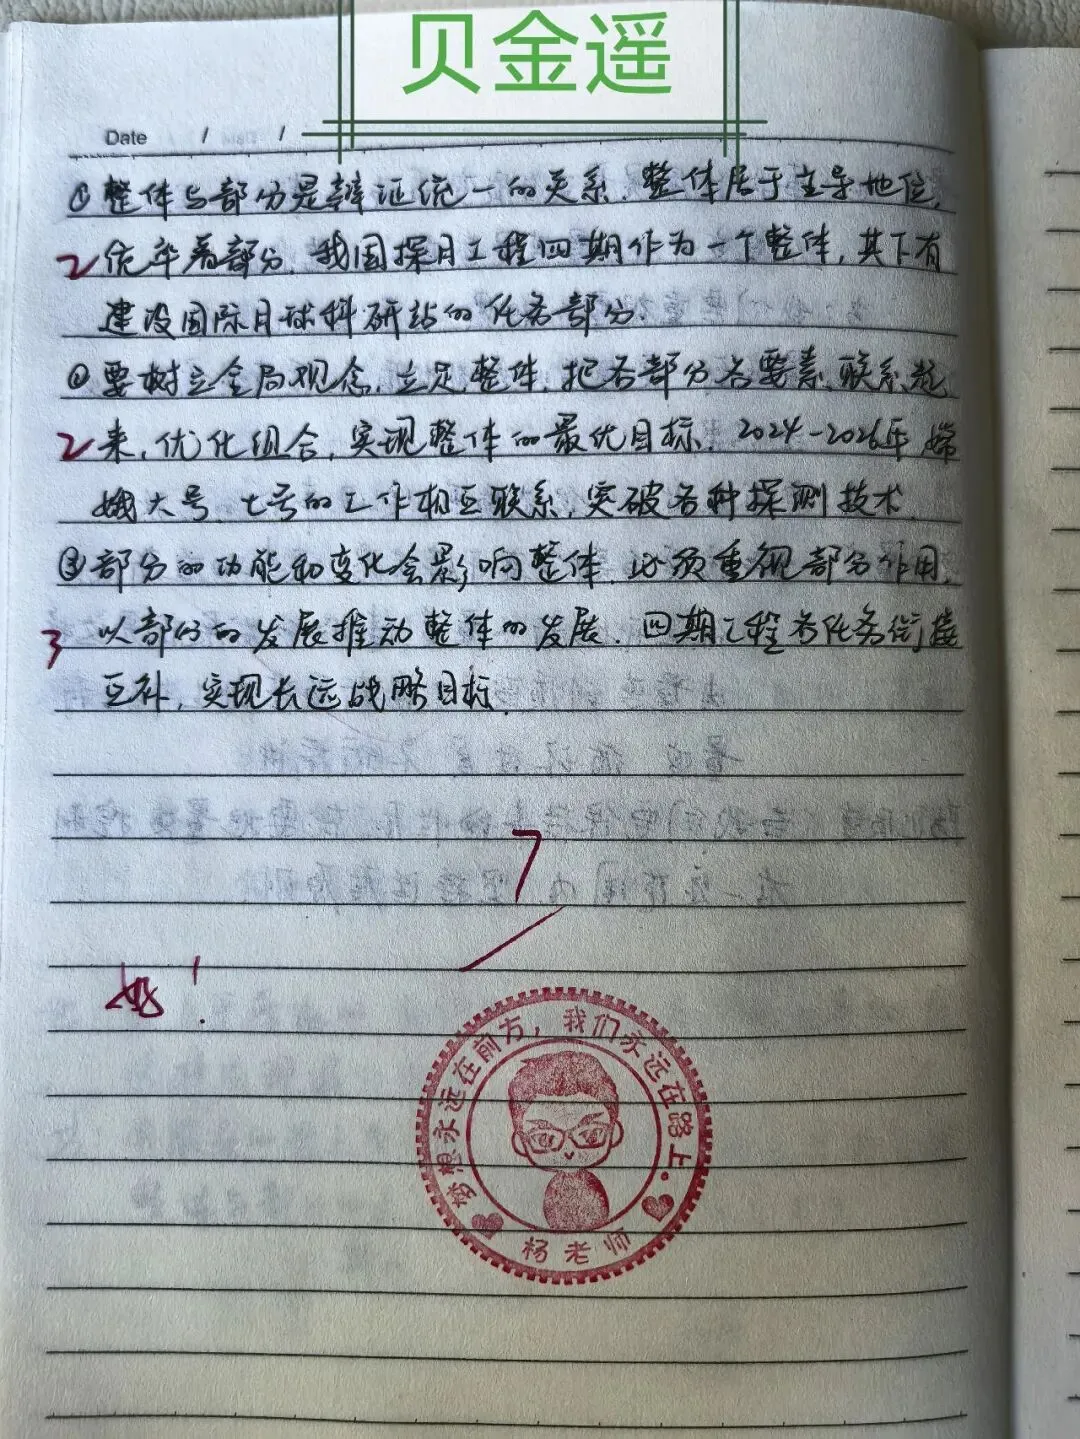 贝金遥
Date / /
①整体与部分是辩证统一的关系.整体居于主导地位,
2 统率着部分.我国探月工程四期作为一个整体,其下有
建设国际月球科研站的任务部分.
②要树立全局观念,立足整体,把各部分各要素联系起
2 来,优化组合,实现整体的最优目标.2024-2026年嫦
娥六号、七号的工作相互联系,突破各种探测技术.
③部分的功能和变化会影响整体.必须重视部分作用,
3 以部分的发展推动整体的发展.四期工程各任务衔接
互补,实现长远战略目标.
7
好!
梦想永远在前方,我们永远在路上.
杨老师